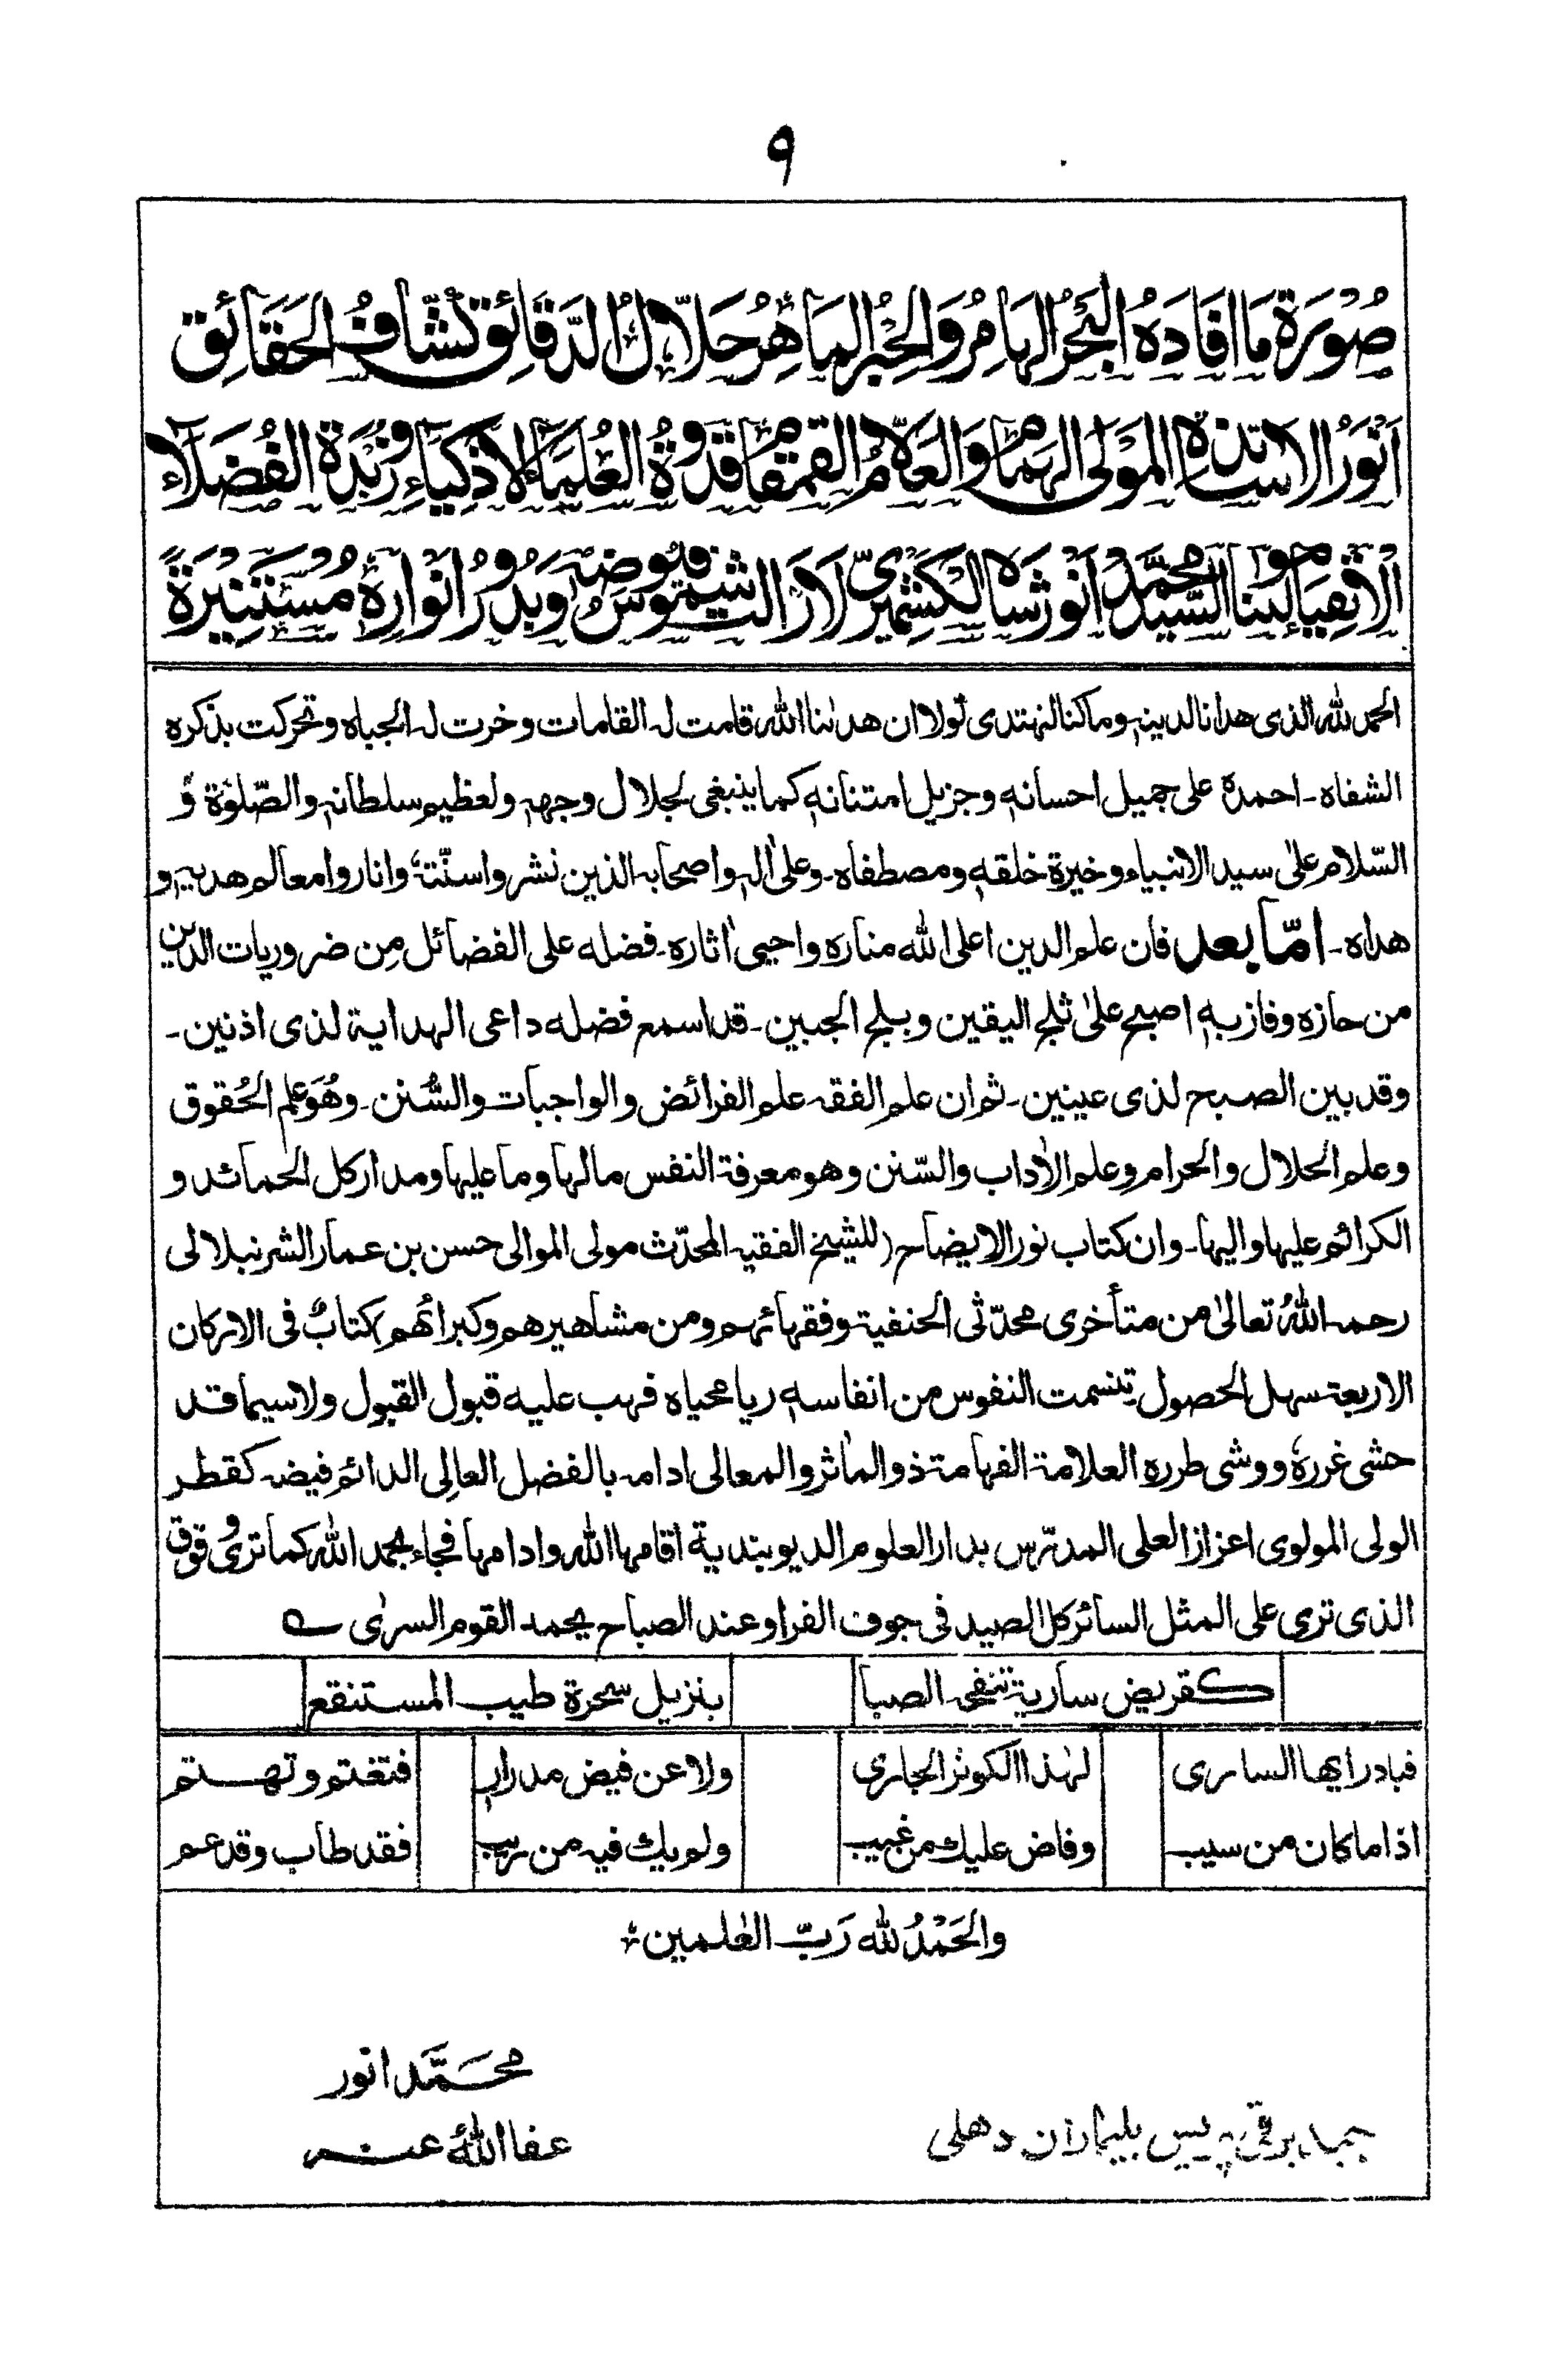 ٩
صُوْرَةُ مَا اَفَادَهُ الْبَحْرُ الْهَامِرُ وَالْحِبْرُ الْمَاهِرُ حَلَّالُ الدَّقَائِقِ كَشَّافُ الْحَقَائِقِ
اَنْوَرُ الْاَسَاتِذَةِ الْمَوْلَى الْهُمَامُ وَالْعَلَّامُ الْقَمْقَامُ قُدْوَةُ الْعُلَمَاءِ الْاَذْكِيَاءِ وَزُبْدَةُ الْفُضَلَاءِ
الْاَتْقِيَاءِ مَوْلٰنَا السَّيِّدُ مُحَمَّدُ اَنْوَرْشَاهْ الْكَشْمِيْرِيّ لَازَالَتْ شُمُوْسُ فُيُوْضِهٖ وَبُدُوْرُ اَنْوَارِهٖ مُسْتَنِيْرَةً
الحمد لله الذی هدانا لدینهٖ وما کنا لنهتدی لولا ان هدٰىنا الله قامت له القامات وخرت له الجباه وتحرکت بذکره
الشفاه۔ احمدهٗ علی جمیل احسانهٖ وجزیل امتنانهٖ کما ینبغی لجلال وجههٖ ولعظیم سلطانهٖ والصّلوٰة وَ
السّلام علیٰ سید الانبیاء وخیرة خلقهٖ ومصطفاه۔ وعلیٰ اٰلهٖ واصحابه الذین نشروا سنّتهٗ وانار وامعالم هدیهٖ و
هداه۔ امّا بعد فان علم الدین اعلی الله مناره واحیی اٰثاره۔ فضله علی الفضائل مِن ضروریات الدین
من حازه وفاز بهٖ اصبح علیٰ ثلج الیقین وبلج الجبین۔ قد اسمع فضله داعی الهدایة لذی اذنین۔
وقد بین الصبح لذی عینین۔ ثم ان علم الفقه علم الفرائض والواجبات والسُّنن۔ وهُوَ علم الحُقوق
وعلم الحلال والحرام وعلم الاٰداب والسّنن وهو معرفة النفس ما لها وما علیها ومدار کل الحمائد و
الکرائم علیها والیها۔ وان کتاب نور الایضاح (للشیخ الفقیه المحدّث مولی الموالی حسن بن عمار الشرنبلالی
رحمه اللهُ تعالیٰ من متأخری محدّثی الحنفیة وفقهائهم ومن مشاهیرهم وکبرائهم) کتابٌ فی الارکان
الاربعة سهل الحصول تنسمت النفوس من انفاسهٖ ریا محیاه فهب علیه قبول القبول ولاسیما قد
حشی غررهٗ ووشی طرره العلامة الفهامة ذو المأثر والمعالی ادامه بالفضل العالِی الدائم فیضه کقطر
الولی المولوی اعزاز العلی المدرّس بدار العلوم الدیوبندیة اقامها الله وادامها فجاء بحمد الله کما تریٰ وفوق
الذی تری علی المثل السائر کل الصید فی جوف الفرا وعند الصباح یحمد القوم السریٰ ؎
کقریض ساریة تنفحه الصبا
بنزیل سحرة طیب المستنقع
فبادر ایها الساری
لهٰذا الکوثر الجاری
ولا عن فیض مدرار
فتغتم وتهتم
اذا ما کان من سیب
وفاض علیك من غیب
ولم یك فیه من ریب
فقد طاب وقد عم
والحَمْدُ لله رَبّ العٰلمین
محمَّد انور
عفا اللهُ عنه
جید برقی پریس بلیماران دهلی